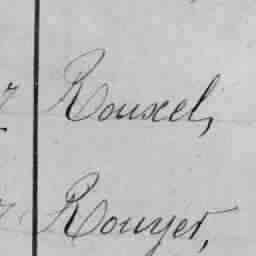 Rouxel,
Rouyer,